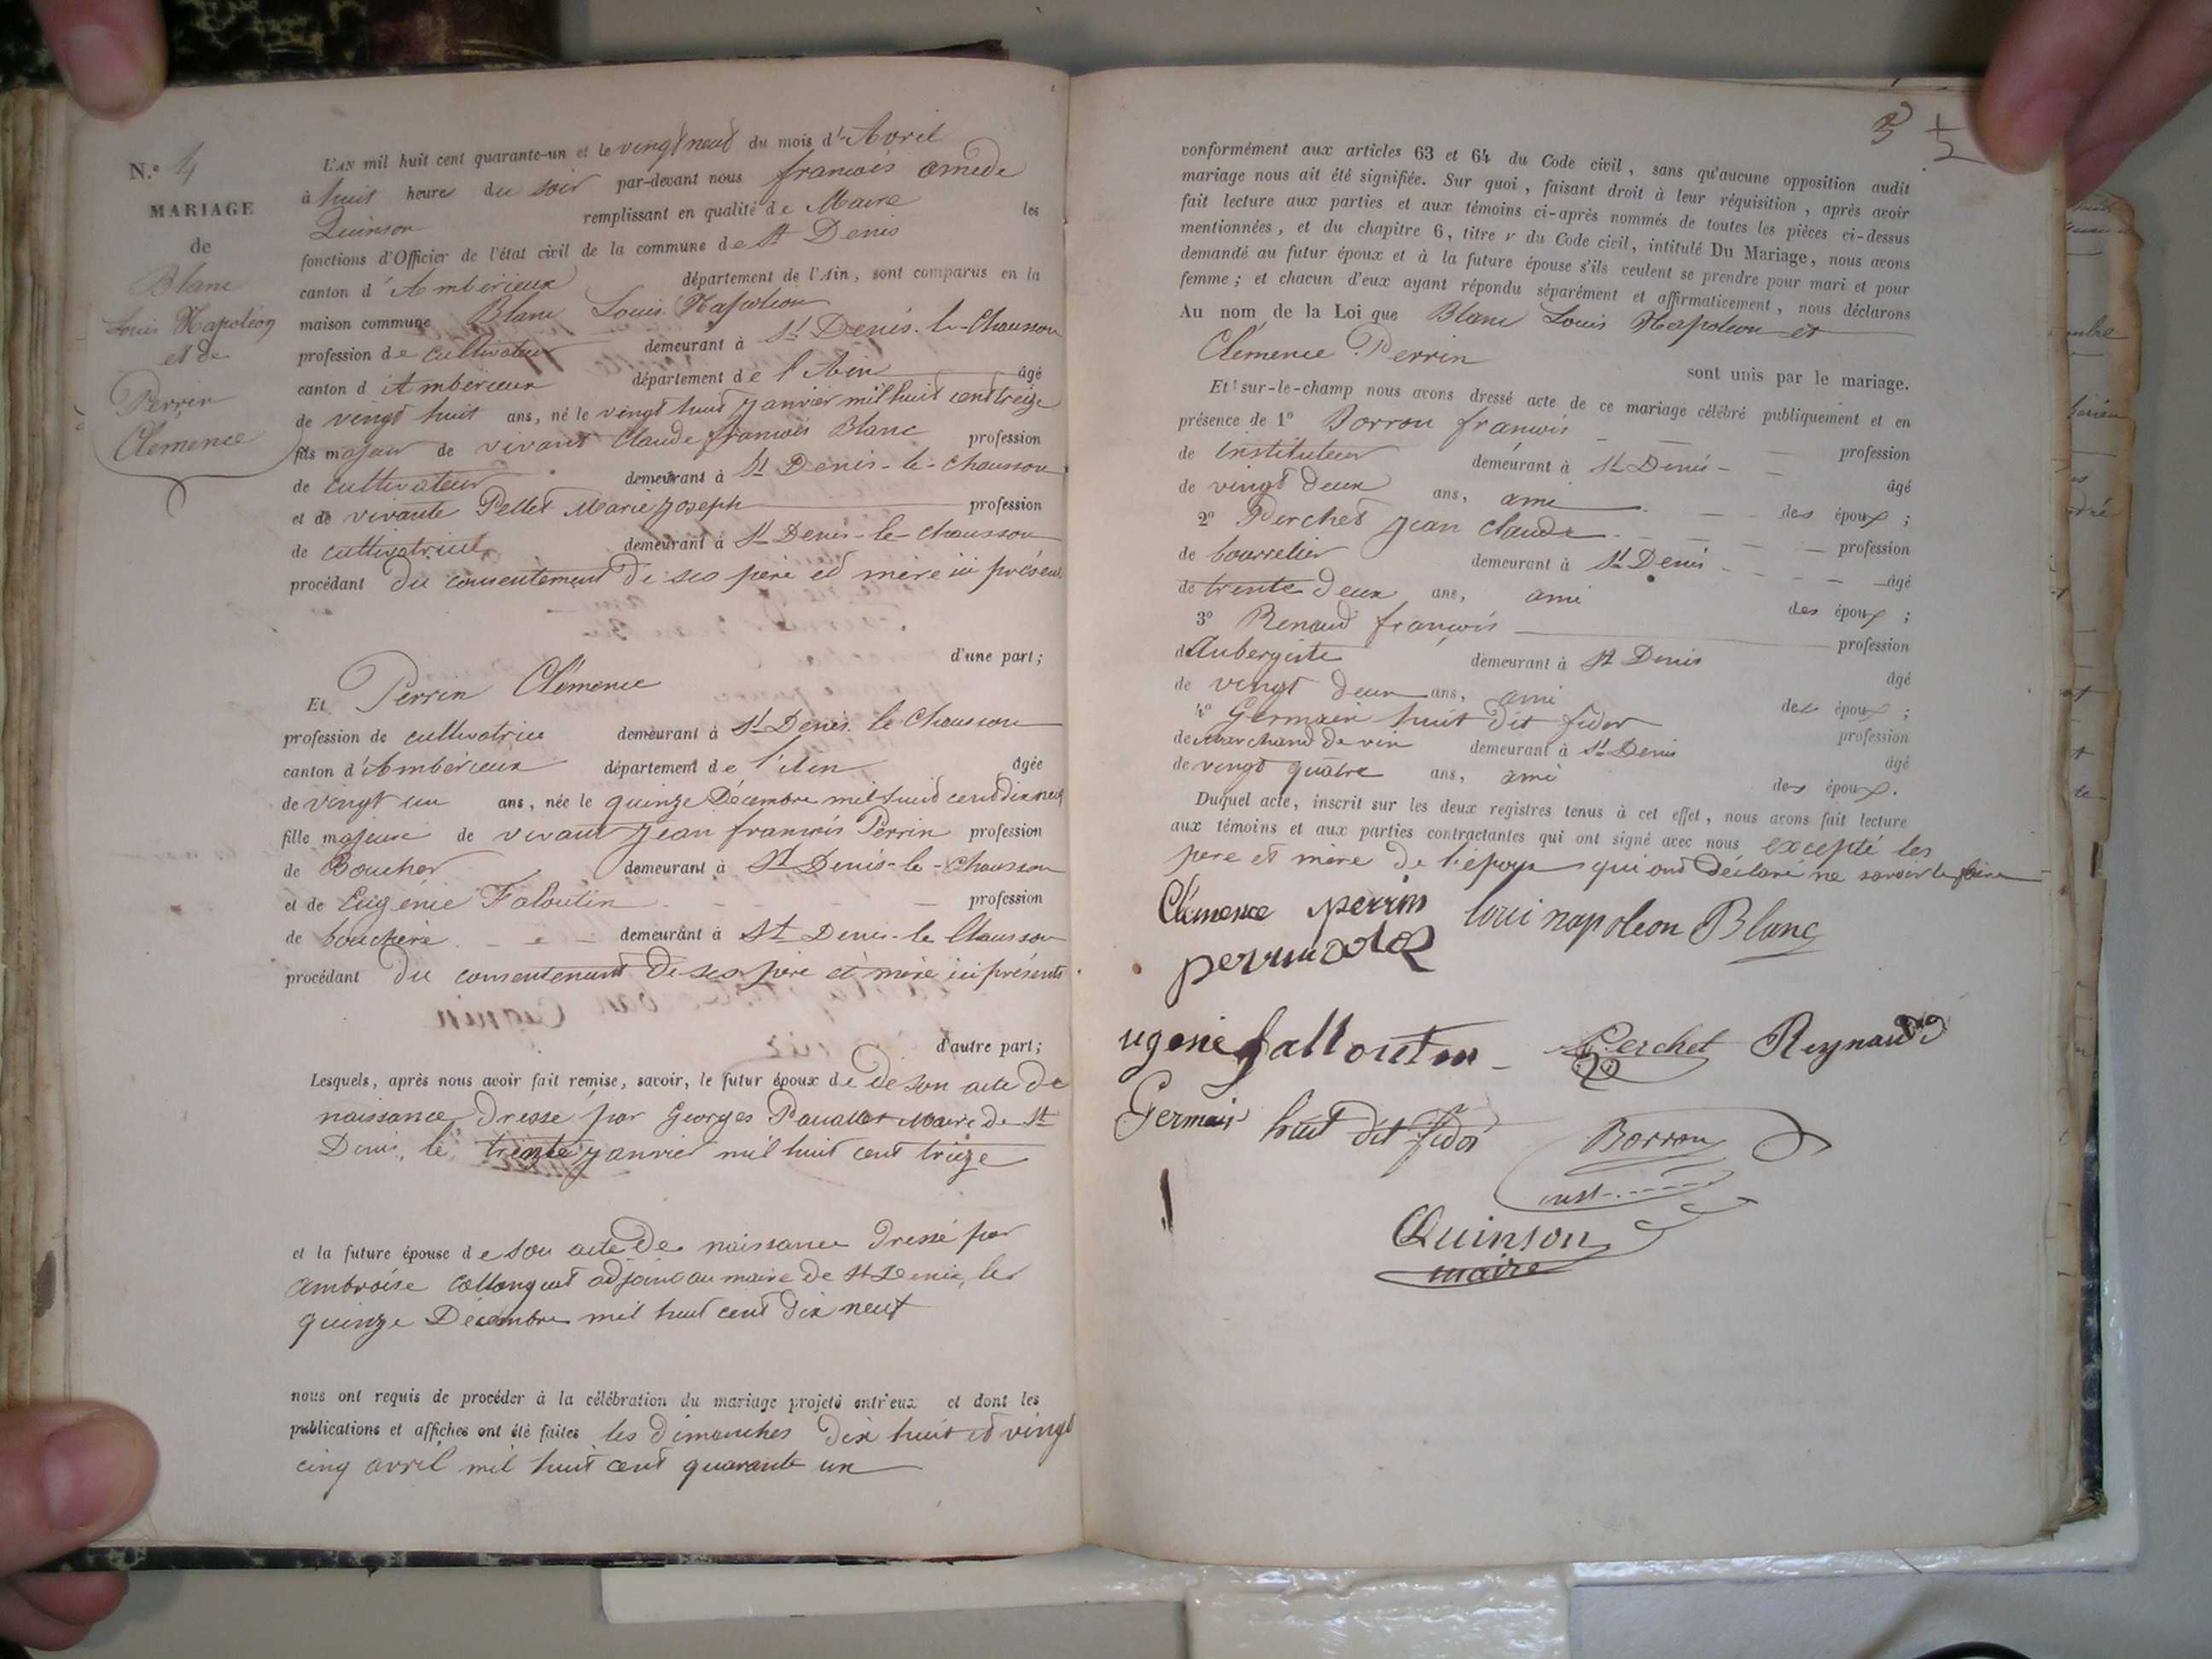 N.º 4
MARIAGE
de
Blanc
Louis Napoléon
et de
Perrin
Clémence
L'AN mil huit cent quarante-un et le vingt neuf du mois d'Avril
à huit heure du soir par-devant nous francois amede
Quinson remplissant en qualité de Maire les
fonctions d'Officier de l'état civil de la commune de St Denis
canton d'Ambérieux département de l'Ain, sont comparus en la
maison commune Blanc Louis Napoleon
profession de cultivateur demeurant à St Denis-le-Chausson
canton d'Amberieux département de l'Ain âgé
de vingt huit ans, né le vingt huit janvier mil huit cent treize
fils majeur de vivant Claude francois Blanc profession
de cultivateur demeurant à St Denis-le-Chausson
et de vivante Pellet Marie joseph profession
de cultivatrice demeurant à St Denis-le-Chausson
procédant du consentement de ses père et mère ici présens
d'une part;
Et Perrin Clémence
profession de cultivatrice demeurant à St Denis le Chausson
canton d'Ambérieux département de l'Ain âgée
de vingt un ans, née le quinze Décembre mil huit cent dix neuf
fille majeure de vivant jean francois Perrin profession
de Boucher demeurant à St Denis-le-Chausson
et de Eugénie Faloutin profession
de bouchère demeurant à St Denis-le Chausson
procédant du consentement de ses père et mère ici présents
d'autre part;
Lesquels, après nous avoir fait remise, savoir, le futur époux de de son acte de
naissance dressé par Georges Maire de St
Denis, le trente janvier mil huit cent treize
et la future épouse de son acte de naissance dressé par
ambroise adjoint au maire de St Denis, le
quinze Décembre mil huit cent dix neuf
nous ont requis de procéder à la célébration du mariage projeté entr'eux et dont les
publications et affiches ont été faites les dimanches dix huit et vingt
cinq avril mil huit cent quarante un
conformément aux articles 63 et 64 du Code civil, sans qu'aucune opposition audit
mariage nous ait été signifiée. Sur quoi, faisant droit à leur réquisition, après avoir
fait lecture aux parties et aux témoins ci-après nommés de toutes les pièces ci-dessus
mentionnées, et du chapitre 6, titre v du Code civil, intitulé Du Mariage, nous avons
demandé au futur époux et à la future épouse s'ils veulent se prendre pour mari et pour
femme; et chacun d'eux ayant répondu séparément et affirmativement, nous déclarons
Au nom de la Loi que Blanc Louis Napoleon et
Clémence Perrin sont unis par le mariage.
Et sur-le-champ nous avons dressé acte de ce mariage célébré publiquement et en
présence de 1º Borron francois profession
de instituteur demeurant à St Denis âgé
de vingt deux ans, ami des époux;
2º Perchet jean claude profession
de bourrelier demeurant à St Denis âgé
de trente deux ans, ami des époux;
3º Renaud françois profession
d'Aubergiste demeurant à St Denis âgé
de vingt deux ans, ami des époux;
4º Germain huit dit fidor profession
de Marchand de vin demeurant à St Denis âgé
de vingt quatre ans, ami des époux.
Duquel acte, inscrit sur les deux registres tenus à cet effet, nous avons fait lecture
aux témoins et aux parties contractantes qui ont signé avec nous excepté les
père et mère de l'époux qui ont déclaré ne savoir le faire
Clémence perrin loui napoleon Blanc
ugenie falloutin Perchet Reynaud
Germain huit dit fidor Borron
inst
Quinson
maire